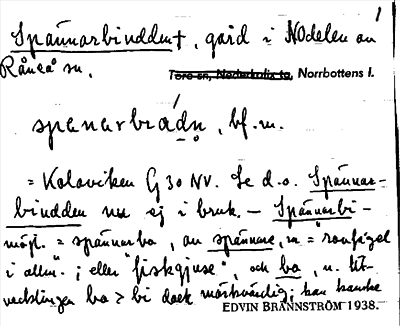 1
Spännarbindden†, gård i NOdelen av
Råneå sn.
Töre sn, Nederkalix tg, Norrbottens l.
spenarbrádn, bf. m.
= Kolaviken G 30 NV. Se d.o. Spännar-
bindden nu ej i bruk. – Spännarbi-
möjl. = spännarba, av spännare, m = "rovfågel
i allm."; eller "fiskgjuse", och ba, n. Ut-
vecklingen ba > bi dock märkvärdig; kan kanske
EDVIN BRÄNNSTRÖM 1938.